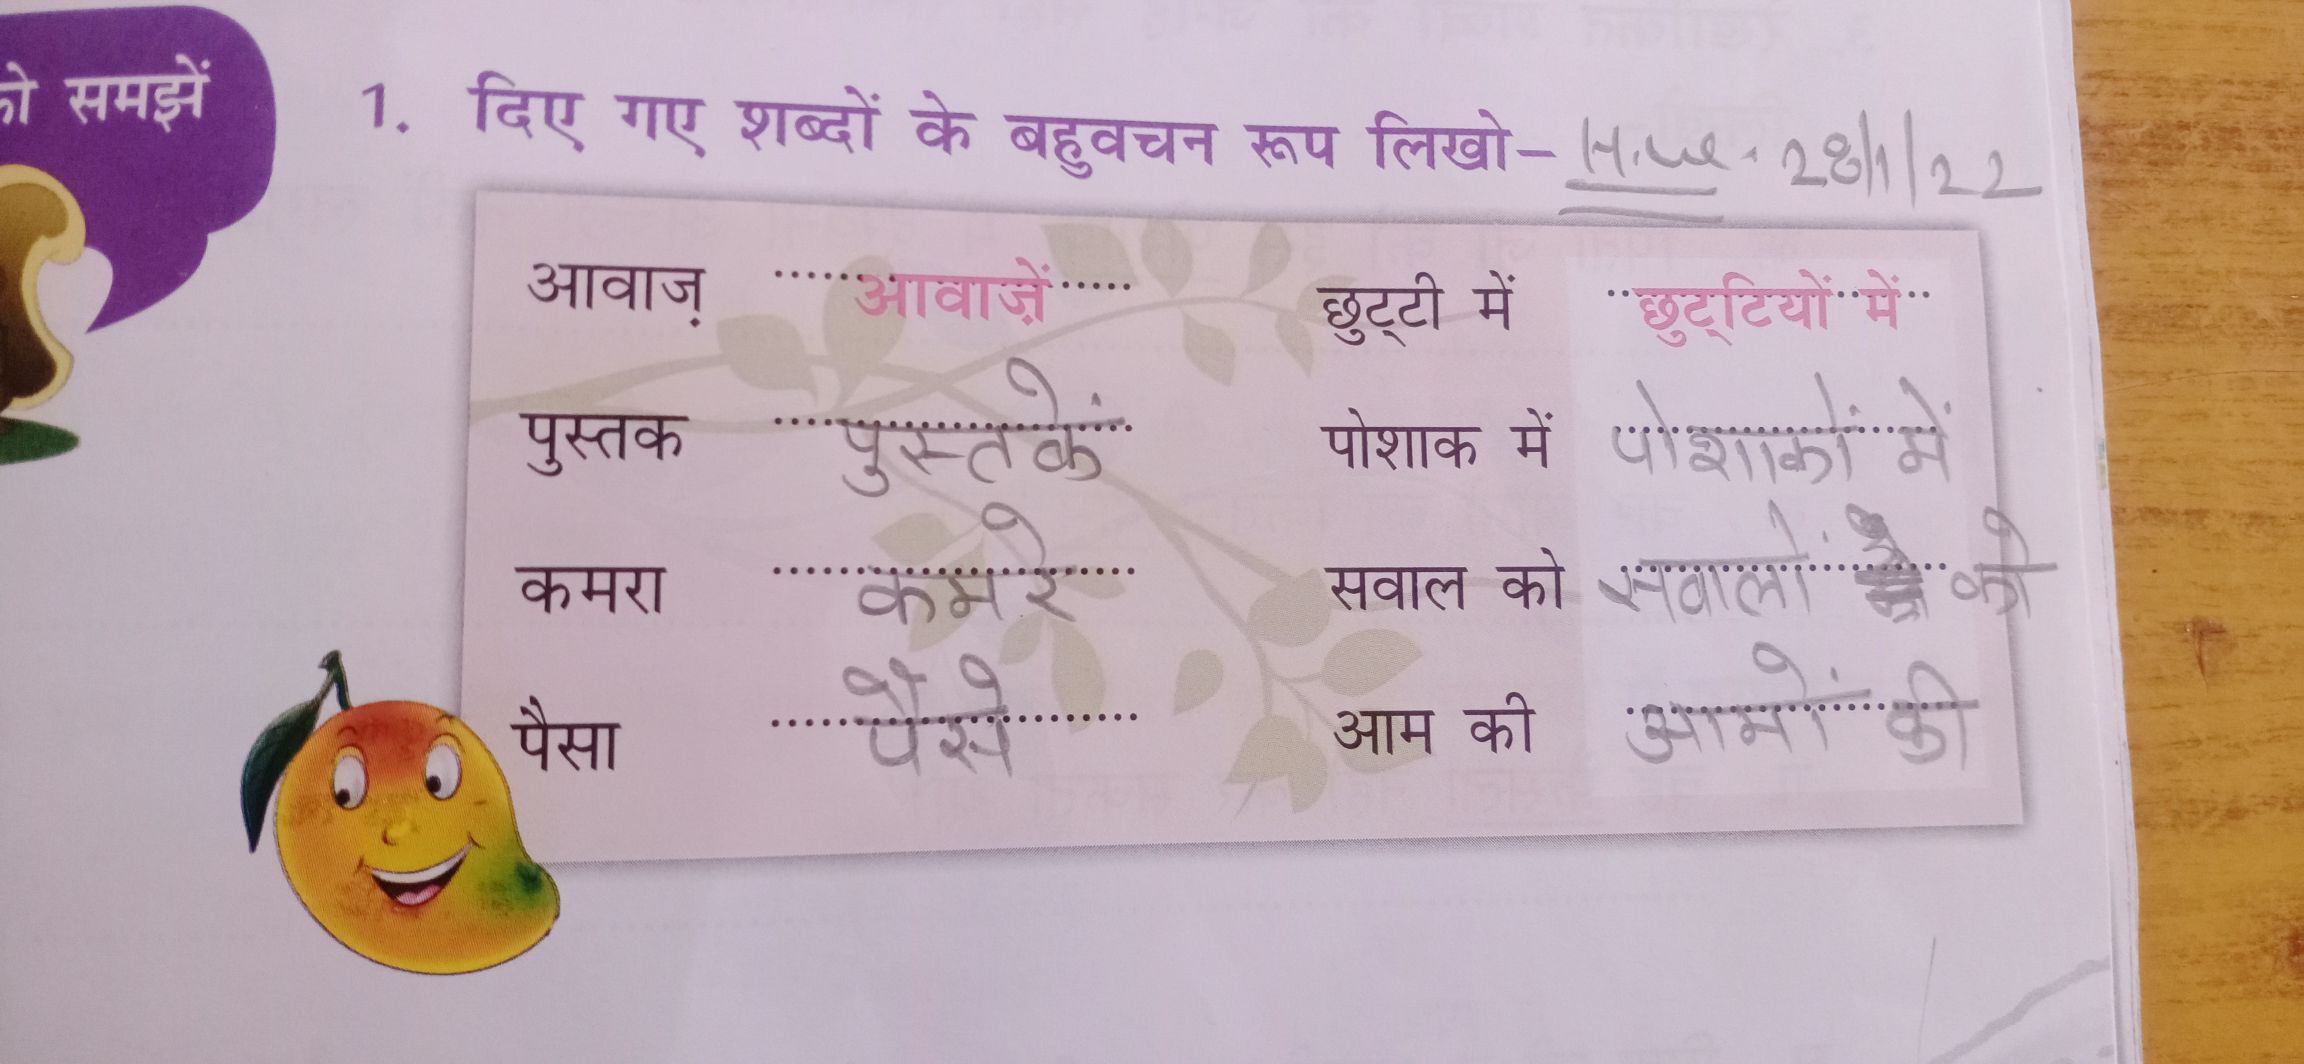 को समझें
1. दिए गए शब्दों के बहुवचन रूप लिखो– H.W. 28/1/22
आवाज़ आवाज़ें छुट्टी में छुट्टियों में
पुस्तक पुस्तकें पोशाक में पोशाकों में
कमरा कमरे सवाल को सवालों को
पैसा पैसे आम की आमों की